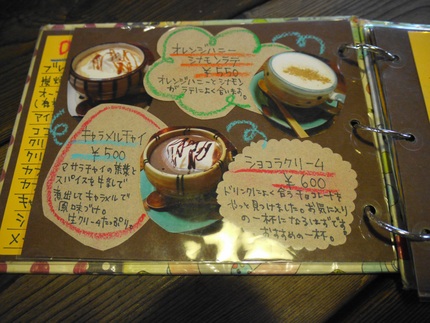 オレンジハニー
シナモンラテ
￥550
オレンジハニーとシナモン
がラテによく合います。
キャラメルチャイ
￥500
マサラチャイの茶葉と
スパイスを牛乳で
煮出してキャラメルで
風味づけ。
生クリームたっぷり。
ショコラクリーム
￥600
ドリンクによく合うチョコレートを
やっと見つけました。お気に入り
の一杯になるはずです。
おすすめの一杯。